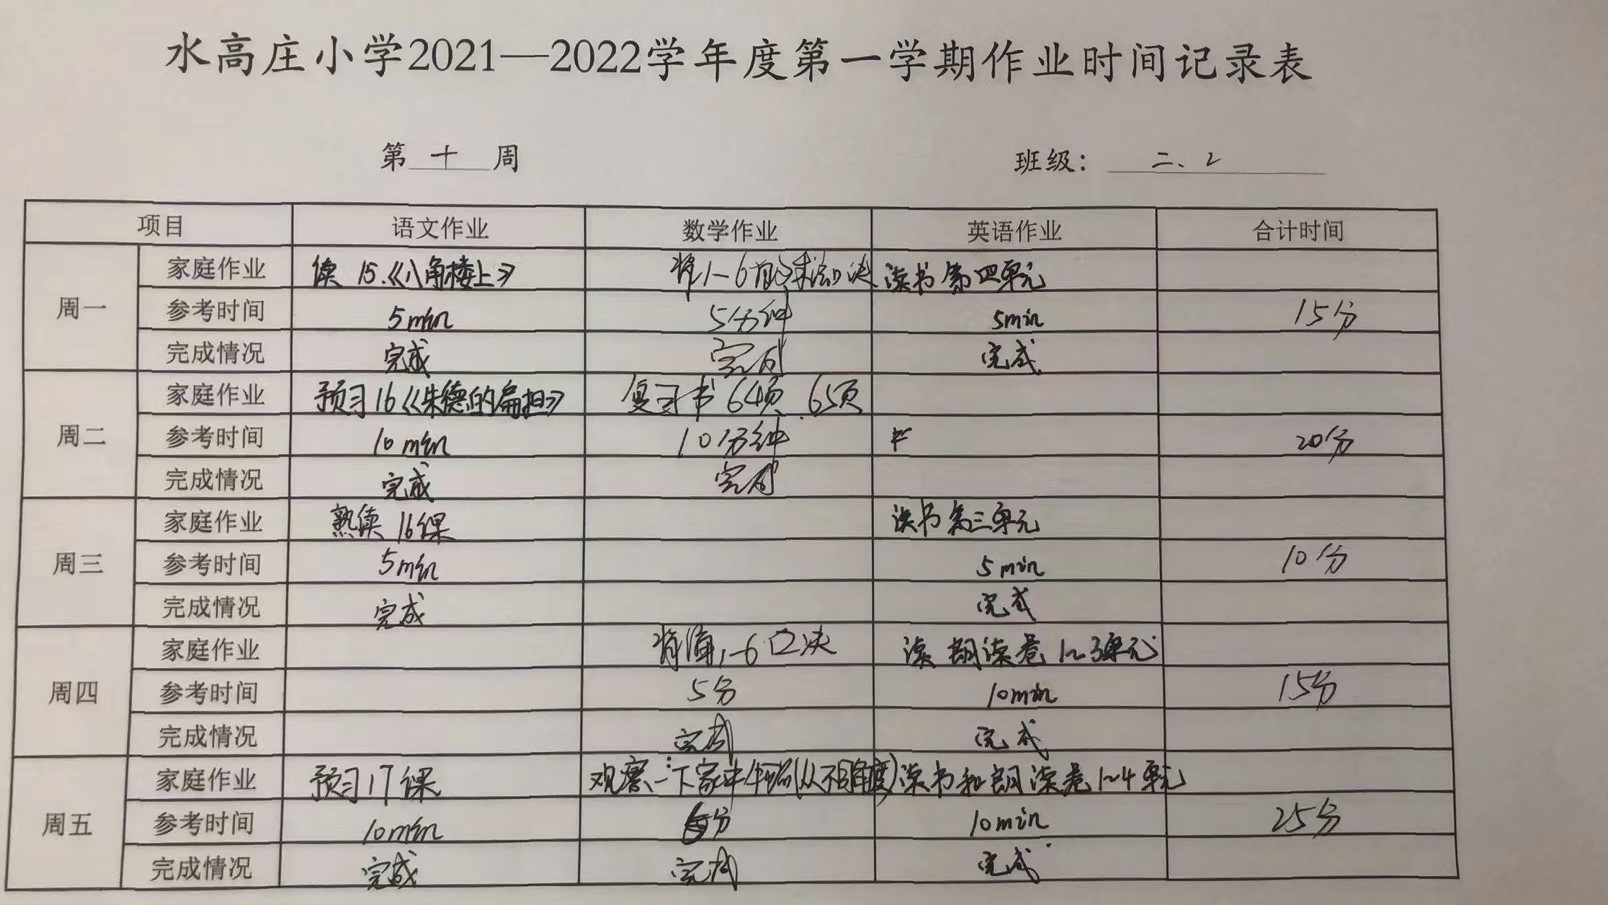 水高庄小学2021—2022学年度第一学期作业时间记录表
第 十 周 班级： 二、2
项目 语文作业 数学作业 英语作业 合计时间
周一 家庭作业 读 15.《八角楼上》 1-6 读书第四单元
参考时间 5min 5分钟 5min 15分
完成情况 完成 完成 完成
周二 家庭作业 预习16《朱德的扁担》 复习书64页.65页
参考时间 10 min 10分钟 20分
完成情况 完成 完成
周三 家庭作业 熟读 16课 读书第三单元
参考时间 5min 5min 10分
完成情况 完成 完成
周四 家庭作业 背诵1-6口决 读 朗读卷 1~3单元
参考时间 5分 10min 15分
完成情况 完成 完成
周五 家庭作业 预习17课 观察一下家中物品(从不同角度) 读书和朗读卷1~4单元
参考时间 10min 5分 10min 25分
完成情况 完成 完成 完成